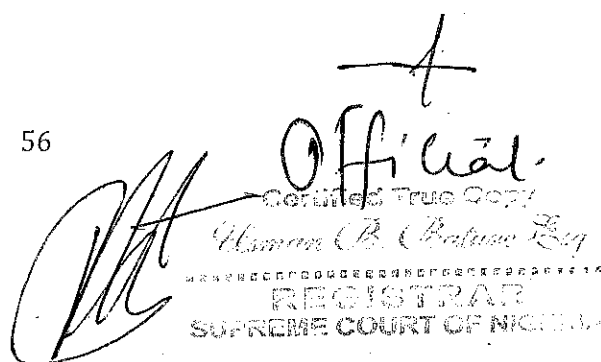 56
Official.
Certified True Copy
Usman B. Esq
REGISTRAR
SUPREME COURT OF